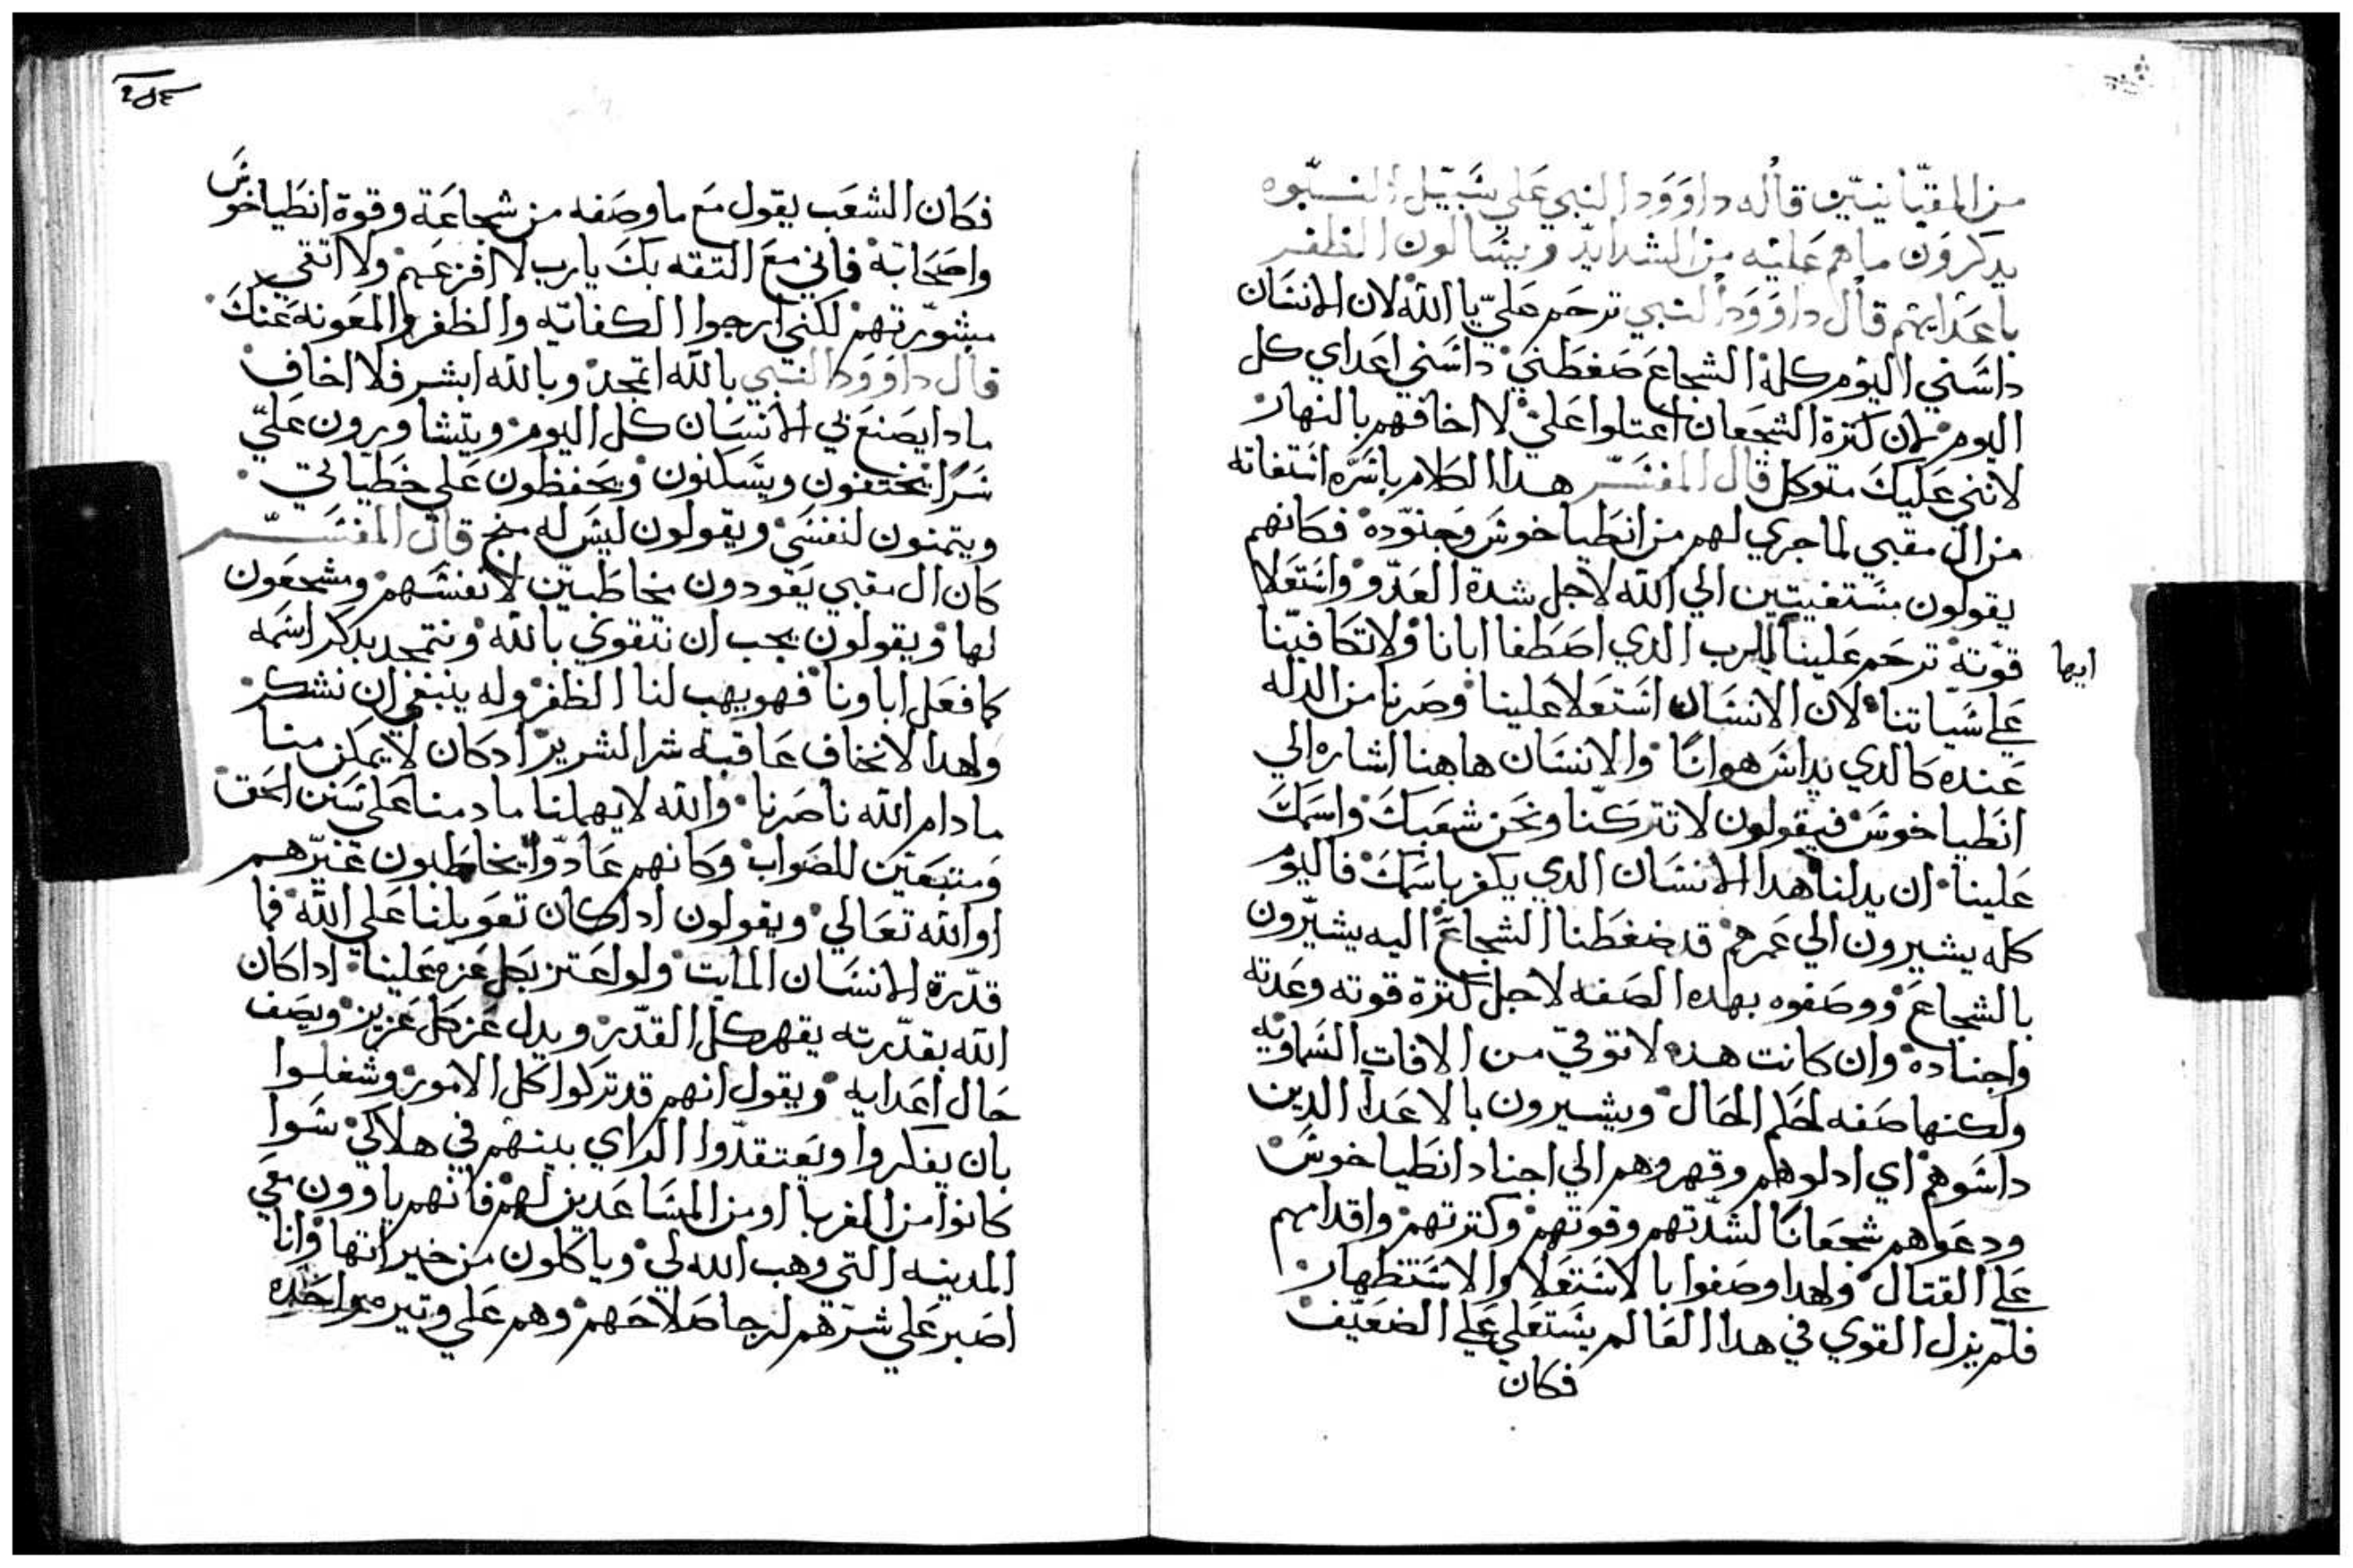 من المقبانيين قاله داوود النبي علي سبيل النبوه
يدكرون ما هم عليه من الشدايد ويسالون الظفر
باعدايهم قال داوود النبي ترحم علي يا الله لان الانسان
داسني اليوم كله الشجاع ضغطني داسني اعداي كل
اليوم لان كترة الشجعان اعتلوا علي لا اخافهم بالنهار
لانني عليك متوكل قال المفسر هدا الكلام باسره استغاثه
من ال مقبي لما جري لهم من انطياخوس وجنوده فكانهم
يقولون مستغيتين الي الله لاجل شدة العدو واستعلا
قوته ترحم علينا ايها الرب الدي اصطفا ابانا ولا تكافينا
علي سياتنا لان الانسان استعلا علينا وصرنا من الدله
عنده كالدي يداس هوانا والانسان هاهنا اشاره الي
انطياخوس فيقولون لا تتركنا ونحن شعبك واسمك
علينا ان يدلنا هدا الانسان الدي يكفر باسمك فاليوم
كله يشيرون الي عمرهم قد ضغطنا الشجاع اليه يشيرون
بالشجاع ووصفوه بهده الصفه لاجل كترة قوته وعدته
واجناده وان كانت هده لا توقي من الافات السماويه
ولكنها صفه لحكم الحال ويشيرون بالاعدا الدين
داسوهم اي ادلوهم وقهروهم الي اجناد انطياخوس
ودعوهم شجعانا لشدتهم وقوتهم وكترتهم واقدامهم
علي القتال ولهدا وصفوا بالاستعلا والاستظهار
فلم يزل القوي في هدا العالم يستعلي علي الضعيف
فكان
فكان الشعب يقول مع ما وصفه من شجاعة وقوة انطياخوس
واصحابه فاني مع التقه بك يارب لا افزع منهم ولا اتقي
مشورتهم لكني ارجوا الكفايه والظفر والمعونه عندك
قال داوود النبي بالله اتمجد وبالله ابشر فلا اخاف
مادا يصنع بي الانسان كل اليوم ويتشاورون علي
شرا يختفون ويسكنون ويحفظون علي خطياتي
ويتمنون لنفسي ويقولون ليس له منج قال المفسر
كان ال مقبي يعودون مخاطبين لانفسهم ومشجعون
لها ويقولون يجب ان نتقوي بالله ونتمجد بدكر اسمه
كما فعل اباونا فهو يهب لنا الظفر وله ينبغي ان نشكر
ولهدا لا نخاف عاقبة شر الشرير ادكان لا يمكن منا
مادام الله ناصرنا والله لا يهملنا ما دمنا علي سنن الحق
ومتبعين للصواب وكانهم عادوا يخاطبون غيرهم
او الله تعالي ويقولون اداكان تعويلنا علي الله فما
قدرة الانسان المايت ولو اعتز بكل عز علينا اداكان
الله بقدرته يقهر كل القدر ويدل عز كل عزيز ويصف
حال اعدايه ويقول انهم قد تركوا كل الامور وشغلوا
بان يفكروا ويعتقدوا الراي بينهم في هلاكي سوا
كانوا من الغربا او من المساعدين لهم فانهم ياوون معي
المدينه التي وهب الله لي وياكلون من خيراتها وانا
اصبر علي شرهم لرجا صلاحهم وهم علي وتيره واحده